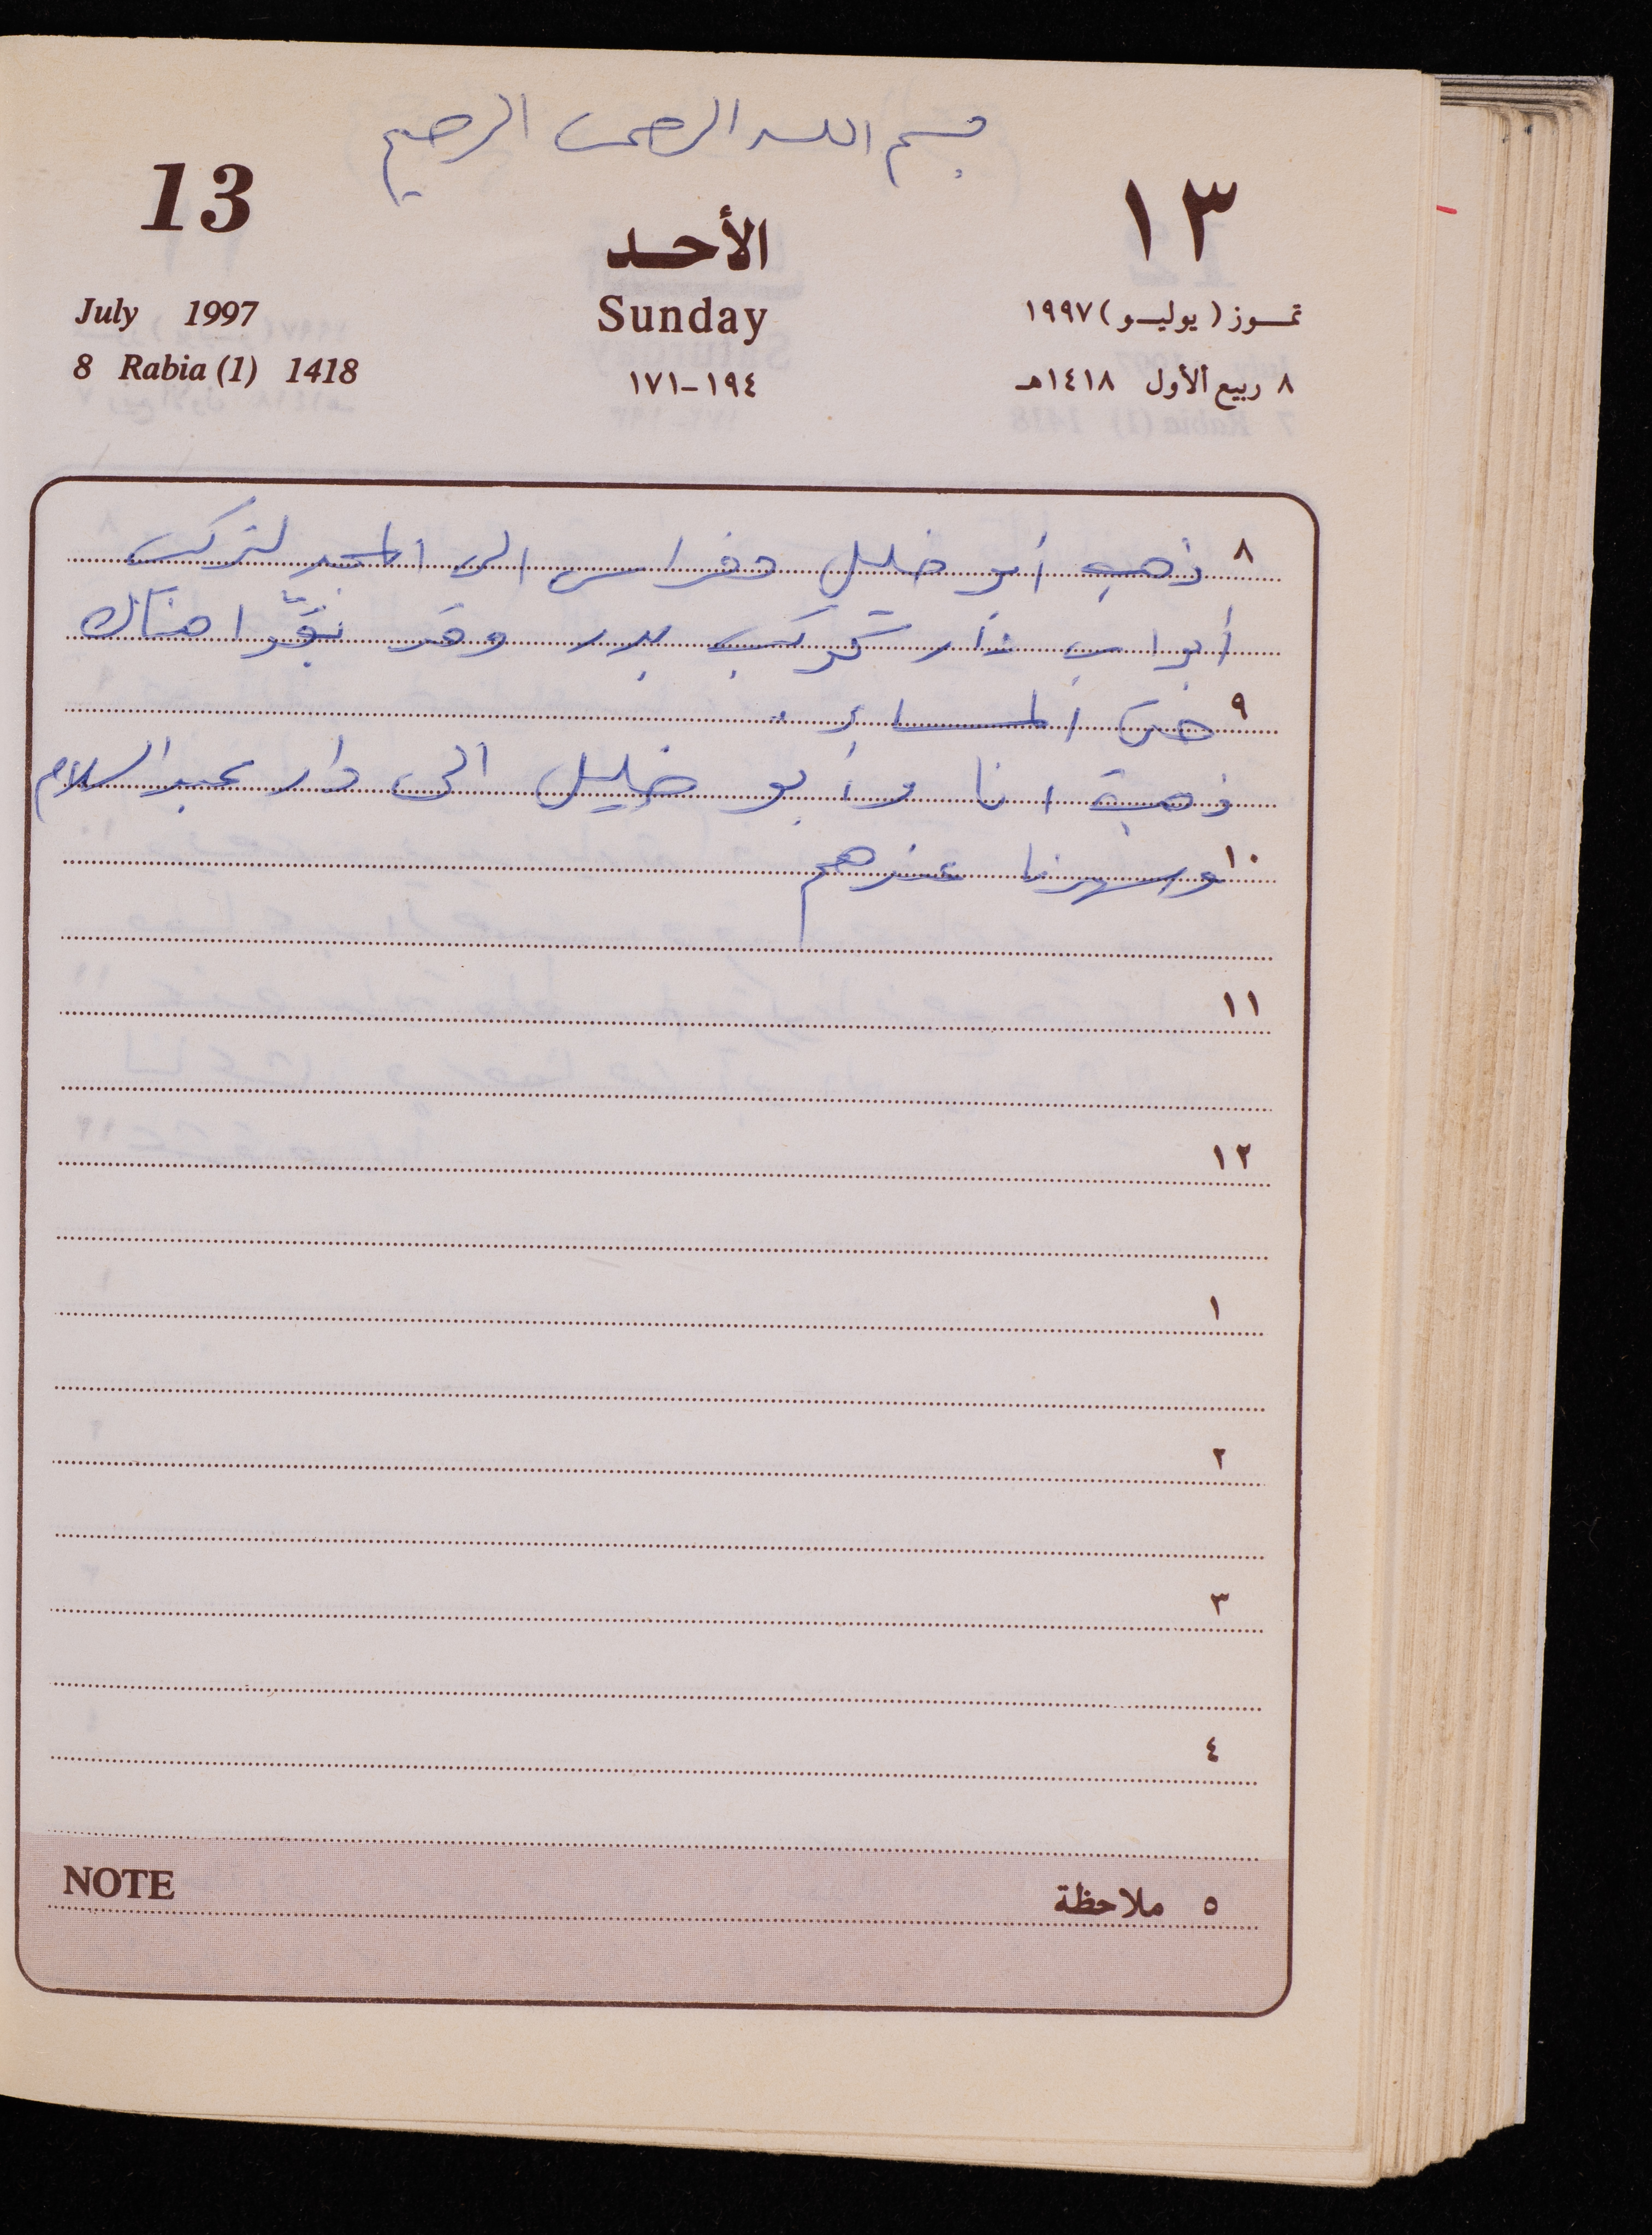 بسم الله الرحمن الرحيم
13
١٣
الأحد
July 1997
Sunday
تمـوز (يوليـو) ١٩٩٧
8 Rabia (1) 1418
١٩٤-١٧١
٨ ربيع الأول ١٤١٨هـ
٨ ذهب أبو خليل وفراس الى لتركيب
أبواب دار بدر وقد هناك
٩ حتى المساء .
ذهبة انا وأبو خليل الى دار عبد السلام
١٠ وسهرنا عندهم
١١
١٢
١
٢
٣
٤
NOTE
٥ ملاحظة